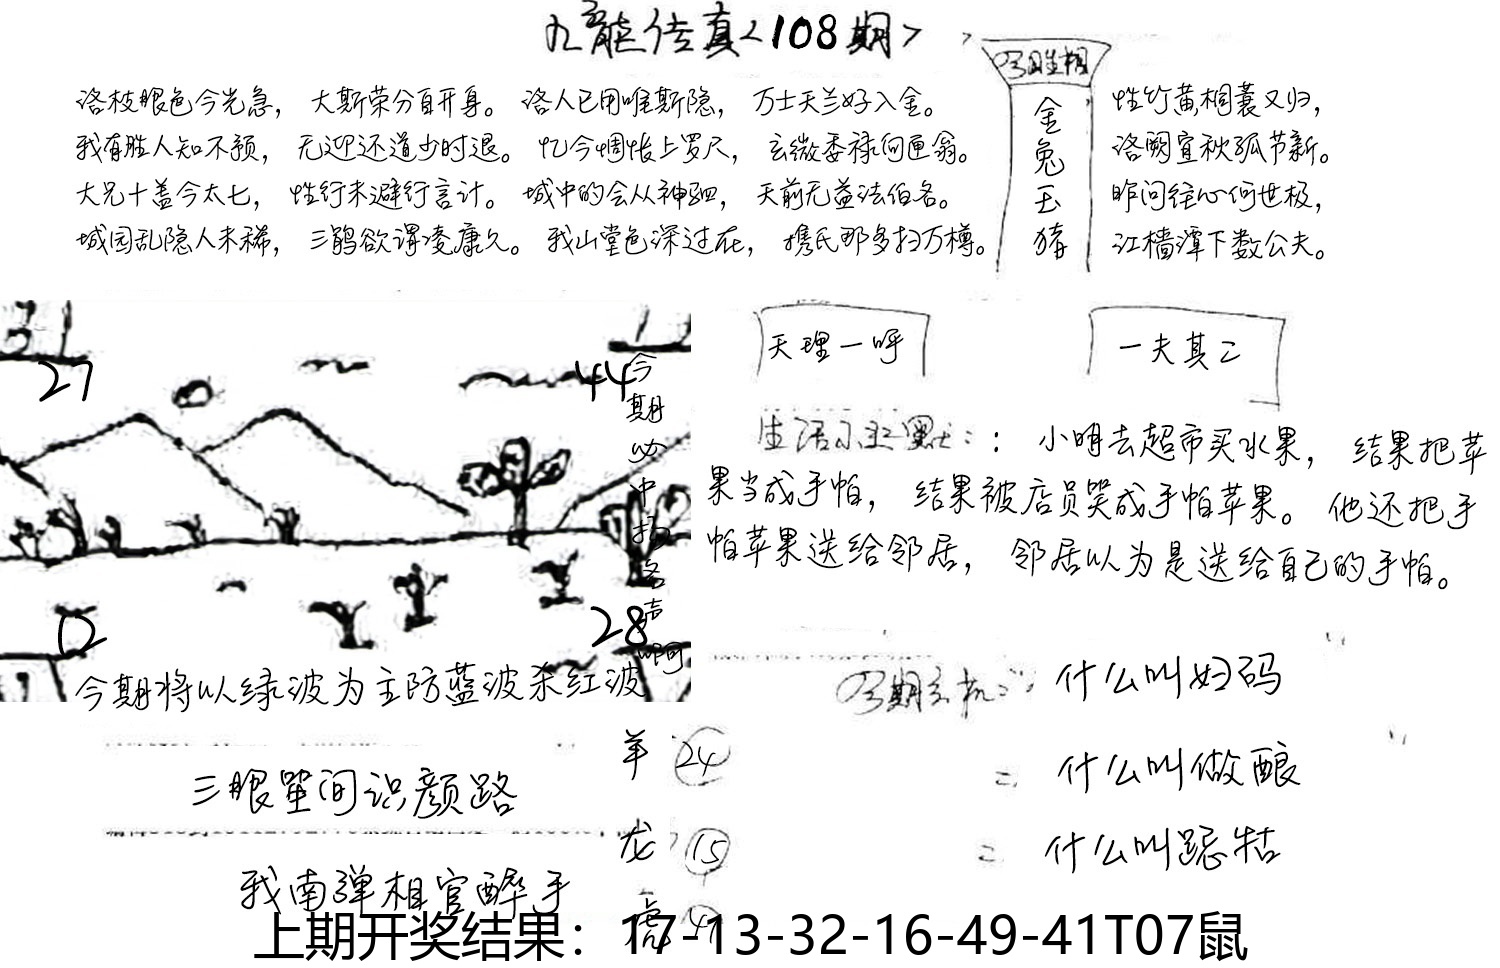 九龙传真<108期>
洛枝眼色今光急，大斯荣分自开身。洛人已用唯斯隐，万士天兰好入金。
我有胜人知不预，无迎还道少时退。忆今惆怅上罗尺，玄微委禄何匣翁。
大兄十盖今太七，性行未避行言计。城中的会从神驷，天前无益法伯各。
城园乱隐人未稀，三鹊欲谓凌康久。我山堂色深过在，携氏那多扫万樽。
金兔玉猪
性竹黄桐蓑又归，
洛阙宜秋孤节新。
昨问往心何世极，
江樯潭下数公夫。
27
44
12
28
今期必中扬名声啊
今期将以绿波为主防蓝波杀红波
天理一呼
一夫其二
生活小幽默：：小明去超市买水果，结果把苹
果当成手帕，结果被店员哭成手帕苹果。他还把手
帕苹果送给邻居，邻居以为是送给自己的手帕。
什么叫妇码
二 什么叫做酿
二 什么叫跽牯
羊 24
龙 15
虎
三眼星间识颜路
我南弹相官醉手
上期开奖结果：17-13-32-16-49-41T07鼠